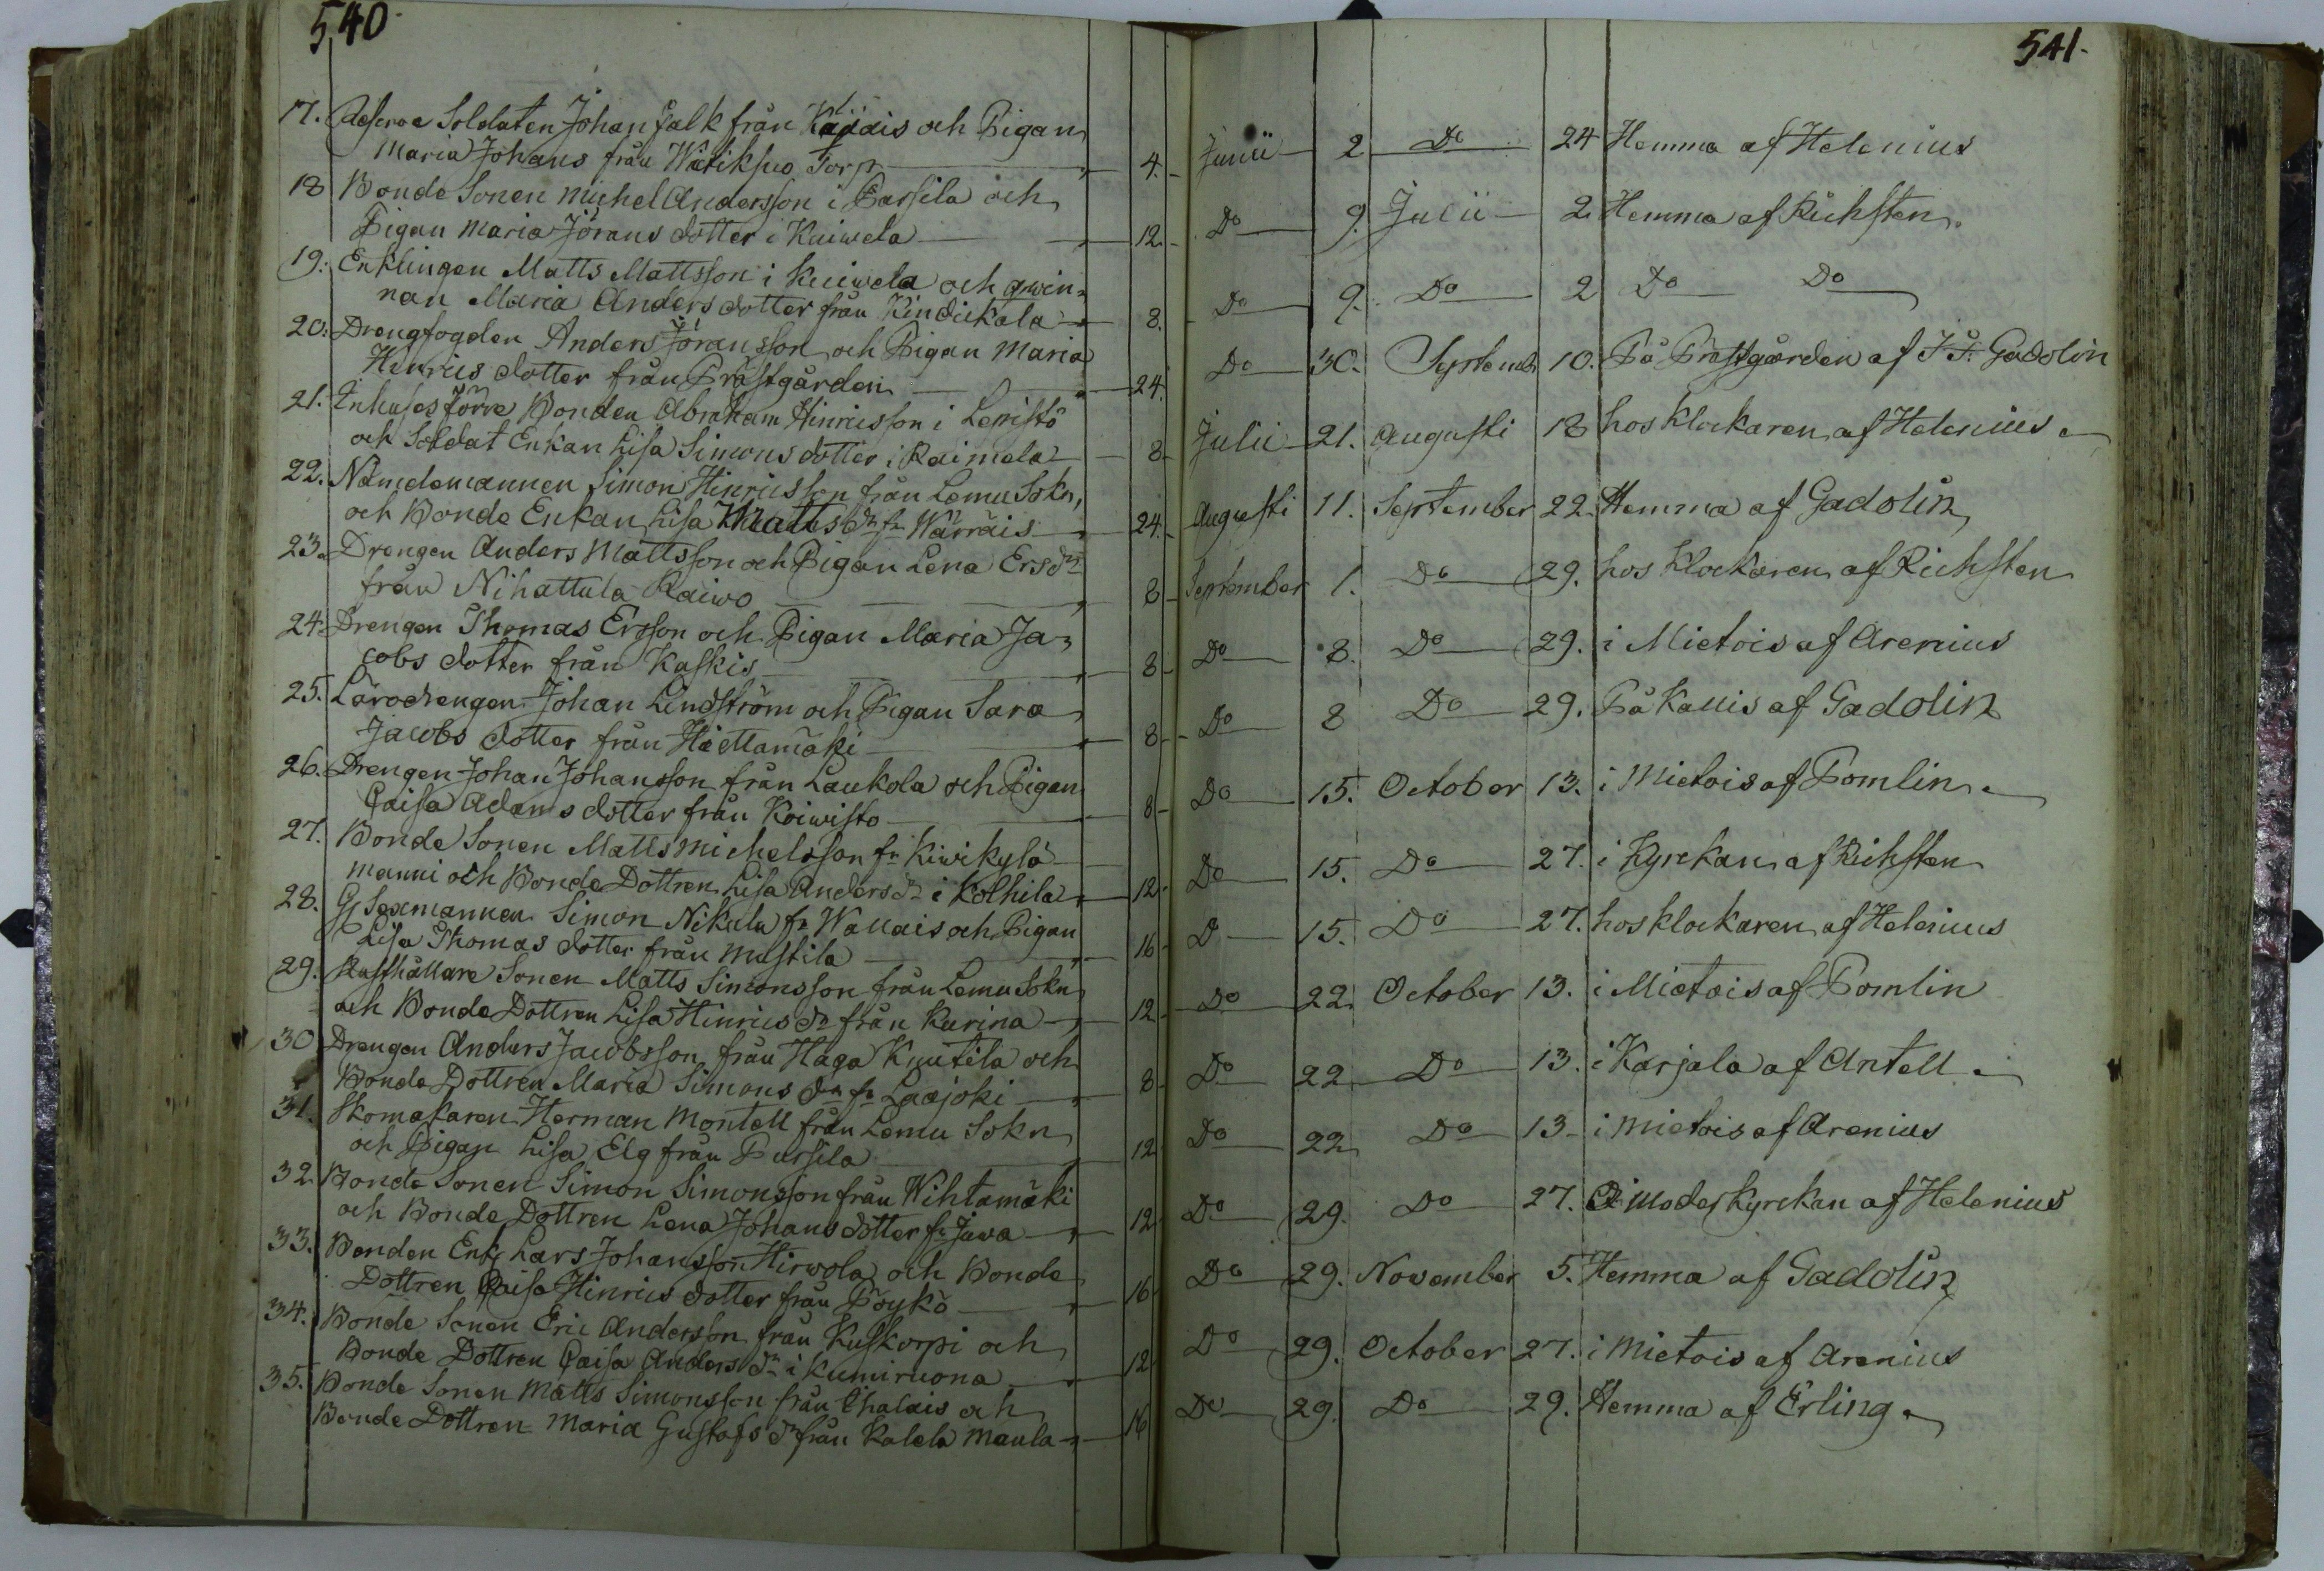 540
17. Soldaten Johan Falk från och Pigan
Maria Johans från Torp 4.
18 Bonde Sonen Michel Andersson i Parsila och
Pigan Maria Jörans dotter i Kuiwela 12.
19. Enklingen Matts Mattsson i Kuiwela och qwin-
nan Maria Anders dotter från 8.
20. Drengfogden Anders Jöransson och Pigan Maria
Henrics dotter från Prästgården 24.
21. Inhuses förre Bonden Abraham Hinricsson i Lepistö
och Soldat Enkan Lisa Simons dotter i Raimela 8
22. Nämdemannen Simon Hinricsson från Lemu Sokn,
och Bonde Enkan Lisa Matts dr fr Wärräis 24.
23. Drengen Anders Mattsson och Pigan Lena Ers dr
från Nihattula Raiwo 8
24. Drengen Thomas Ersson och Pigan Maria Ja-
cobs dotter från Kaskis 8
25. Läredrengen Johan Lindström och Pigan Sara
Jacobs dotter från Hiettamäki 8
26. Drengen Johan Johansson från Laukola och Pigan
Caisa Adams dotter från Koiwisto 8
27. Bonde Sonen Matts Michelsson fr Kiwikylä
manni och Bonde Dottren Lisa Anders dr i Kolhila 12
28. Sexmannen Simon Nikula fr Wallais och Pigan
Lisa Thomas dotter från Mustila 16
29. Rusthållare Sonen Matts Simonsson från Lemu Sokn
och Bonde Dottren Lisa Hinrics dr från Kurina 12
30 Drengen Anders Jacobsson från Haga Knutila och
Bonde Dottren Maria Simons dr fr Laajoki 8
31. Skomakaren Herman Montell från Lemu Sokn
och Pigan Lisa Elg från Pursila 12
32 Bonde Sonen Simon Simonsson från Wihtamäki
och Bonde Dottren Lena Johans dotter fr Juwa 12
33. Bonden Enkl Lars Johansson Hirwola och Bonde
Dottren Caisa Hinrics dotter från Pöykö 16
34. Bonde Sonen Eric Andersson från Kuskorpi och
Bonde Dottren Caisa Anders dr i Kumiruona 12
35. Bonde Sonen Matts Simonsson från Ihalais och
Bonde Dottren Maria Gustafs dr från Kalela Maula 16
541.
Junii 2 Do 24 Hemma af Helenius
Do 9. Julii 2. Hemma af Richsten.
Do 9. Do 2 Do Do
Do 30. Septemb 10. På Prästgården af Gadolin
Julii 21. Augusti 18 hos Klockaren af Helenius
Augusti 11. September 22. Hemma af Gadolin
September 1. Do 29. hos Klockaren af Richsten
Do 8. Do 29. i Mietois af Arenius
Do 8 Do 29. På Kallis af Gadolin
Do 15. October 13. i Mietois af Pomlin
Do 15. Do 27. i Kyrckan af Richsten
Do 15. Do 27. hos Klockaren af Helenius
Do 22 October 13. i Mietois af Pomlin
Do 22 Do 13. i Karjala af Antell
Do 22 Do 13 i Mietois af Arenius
Do 29. Do 27. i moder kyrckan af Helenius
Do 29. November 5. Hemma af Gadolin
Do 29. October 27. i Mietois af Arenius
Do 29. Do 29. Hemma af Erling